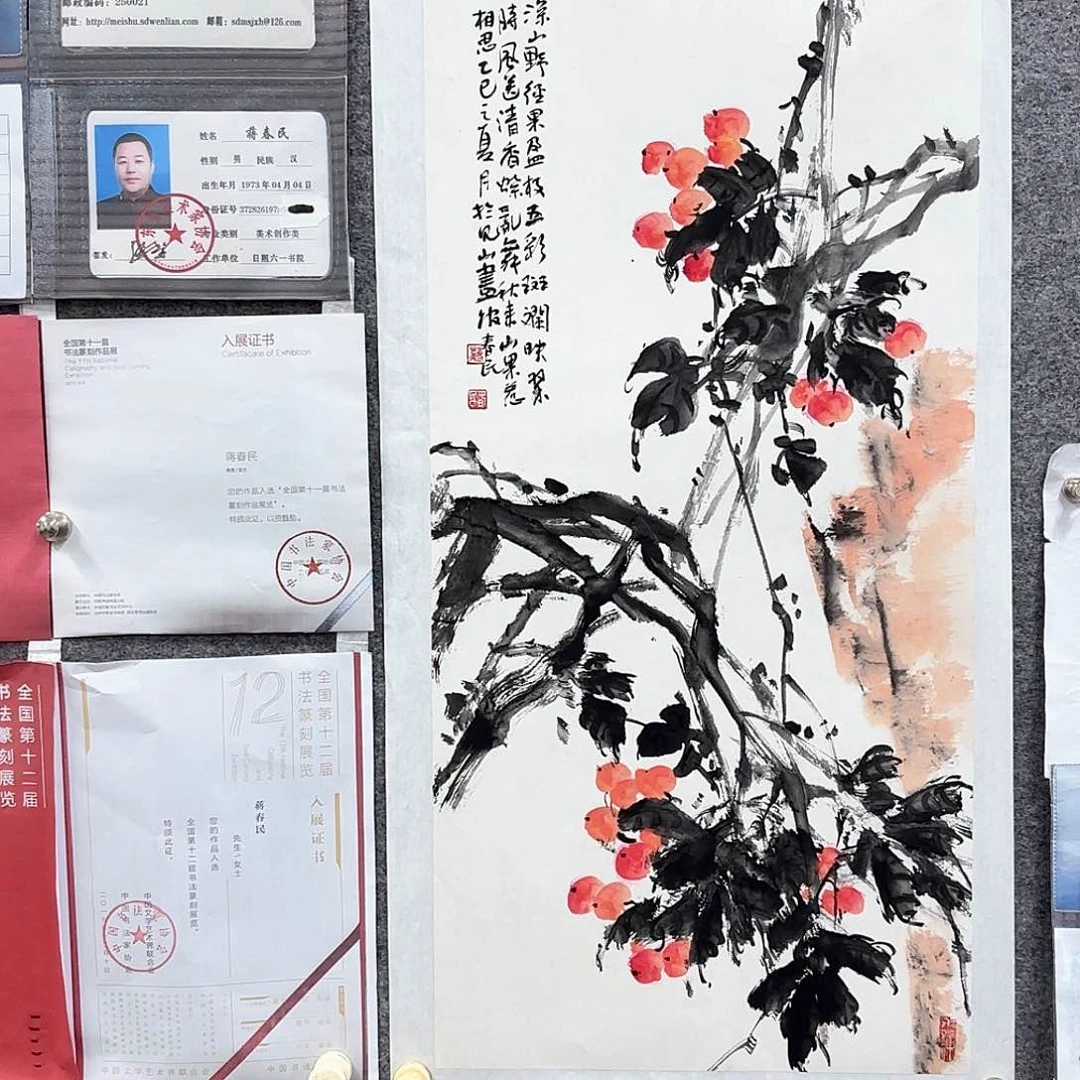 邮政编码：250021
网址：http://meishu.sdwenlian.com 邮箱：sdmsjxh@126.com
姓名 蒋春民
性别 男 民族 汉
出生年月 1973年04月04日
身份证号 372826197
业类别 美术创作类
签发：
工作单位 日照六一书院
全国第十一届
书法篆刻作品展
The 11th National
Calligraphy and Seal Carving
Exhibition
入展证书
Certificacare of Exhibition
蒋春民
您的作品入选“全国第十一届书法
篆刻作品展览”。
特颁此证，以资鼓励。
中国书法家协会
全国第十二届
书法篆刻展览
12
全国第十二届
书法篆刻展览
入展证书
蒋春民
先生/女士
您的作品入选
全国第十二届书法篆刻展览。
特颁此证。
中国文学艺术界联合会
中国书法家协会
中国文学艺术界联合会
深山野径果盈枝五彩斑斓映翠
时风送清香蝶乱舞秋来山果惹
相思乙巳之夏月於见山画
春民